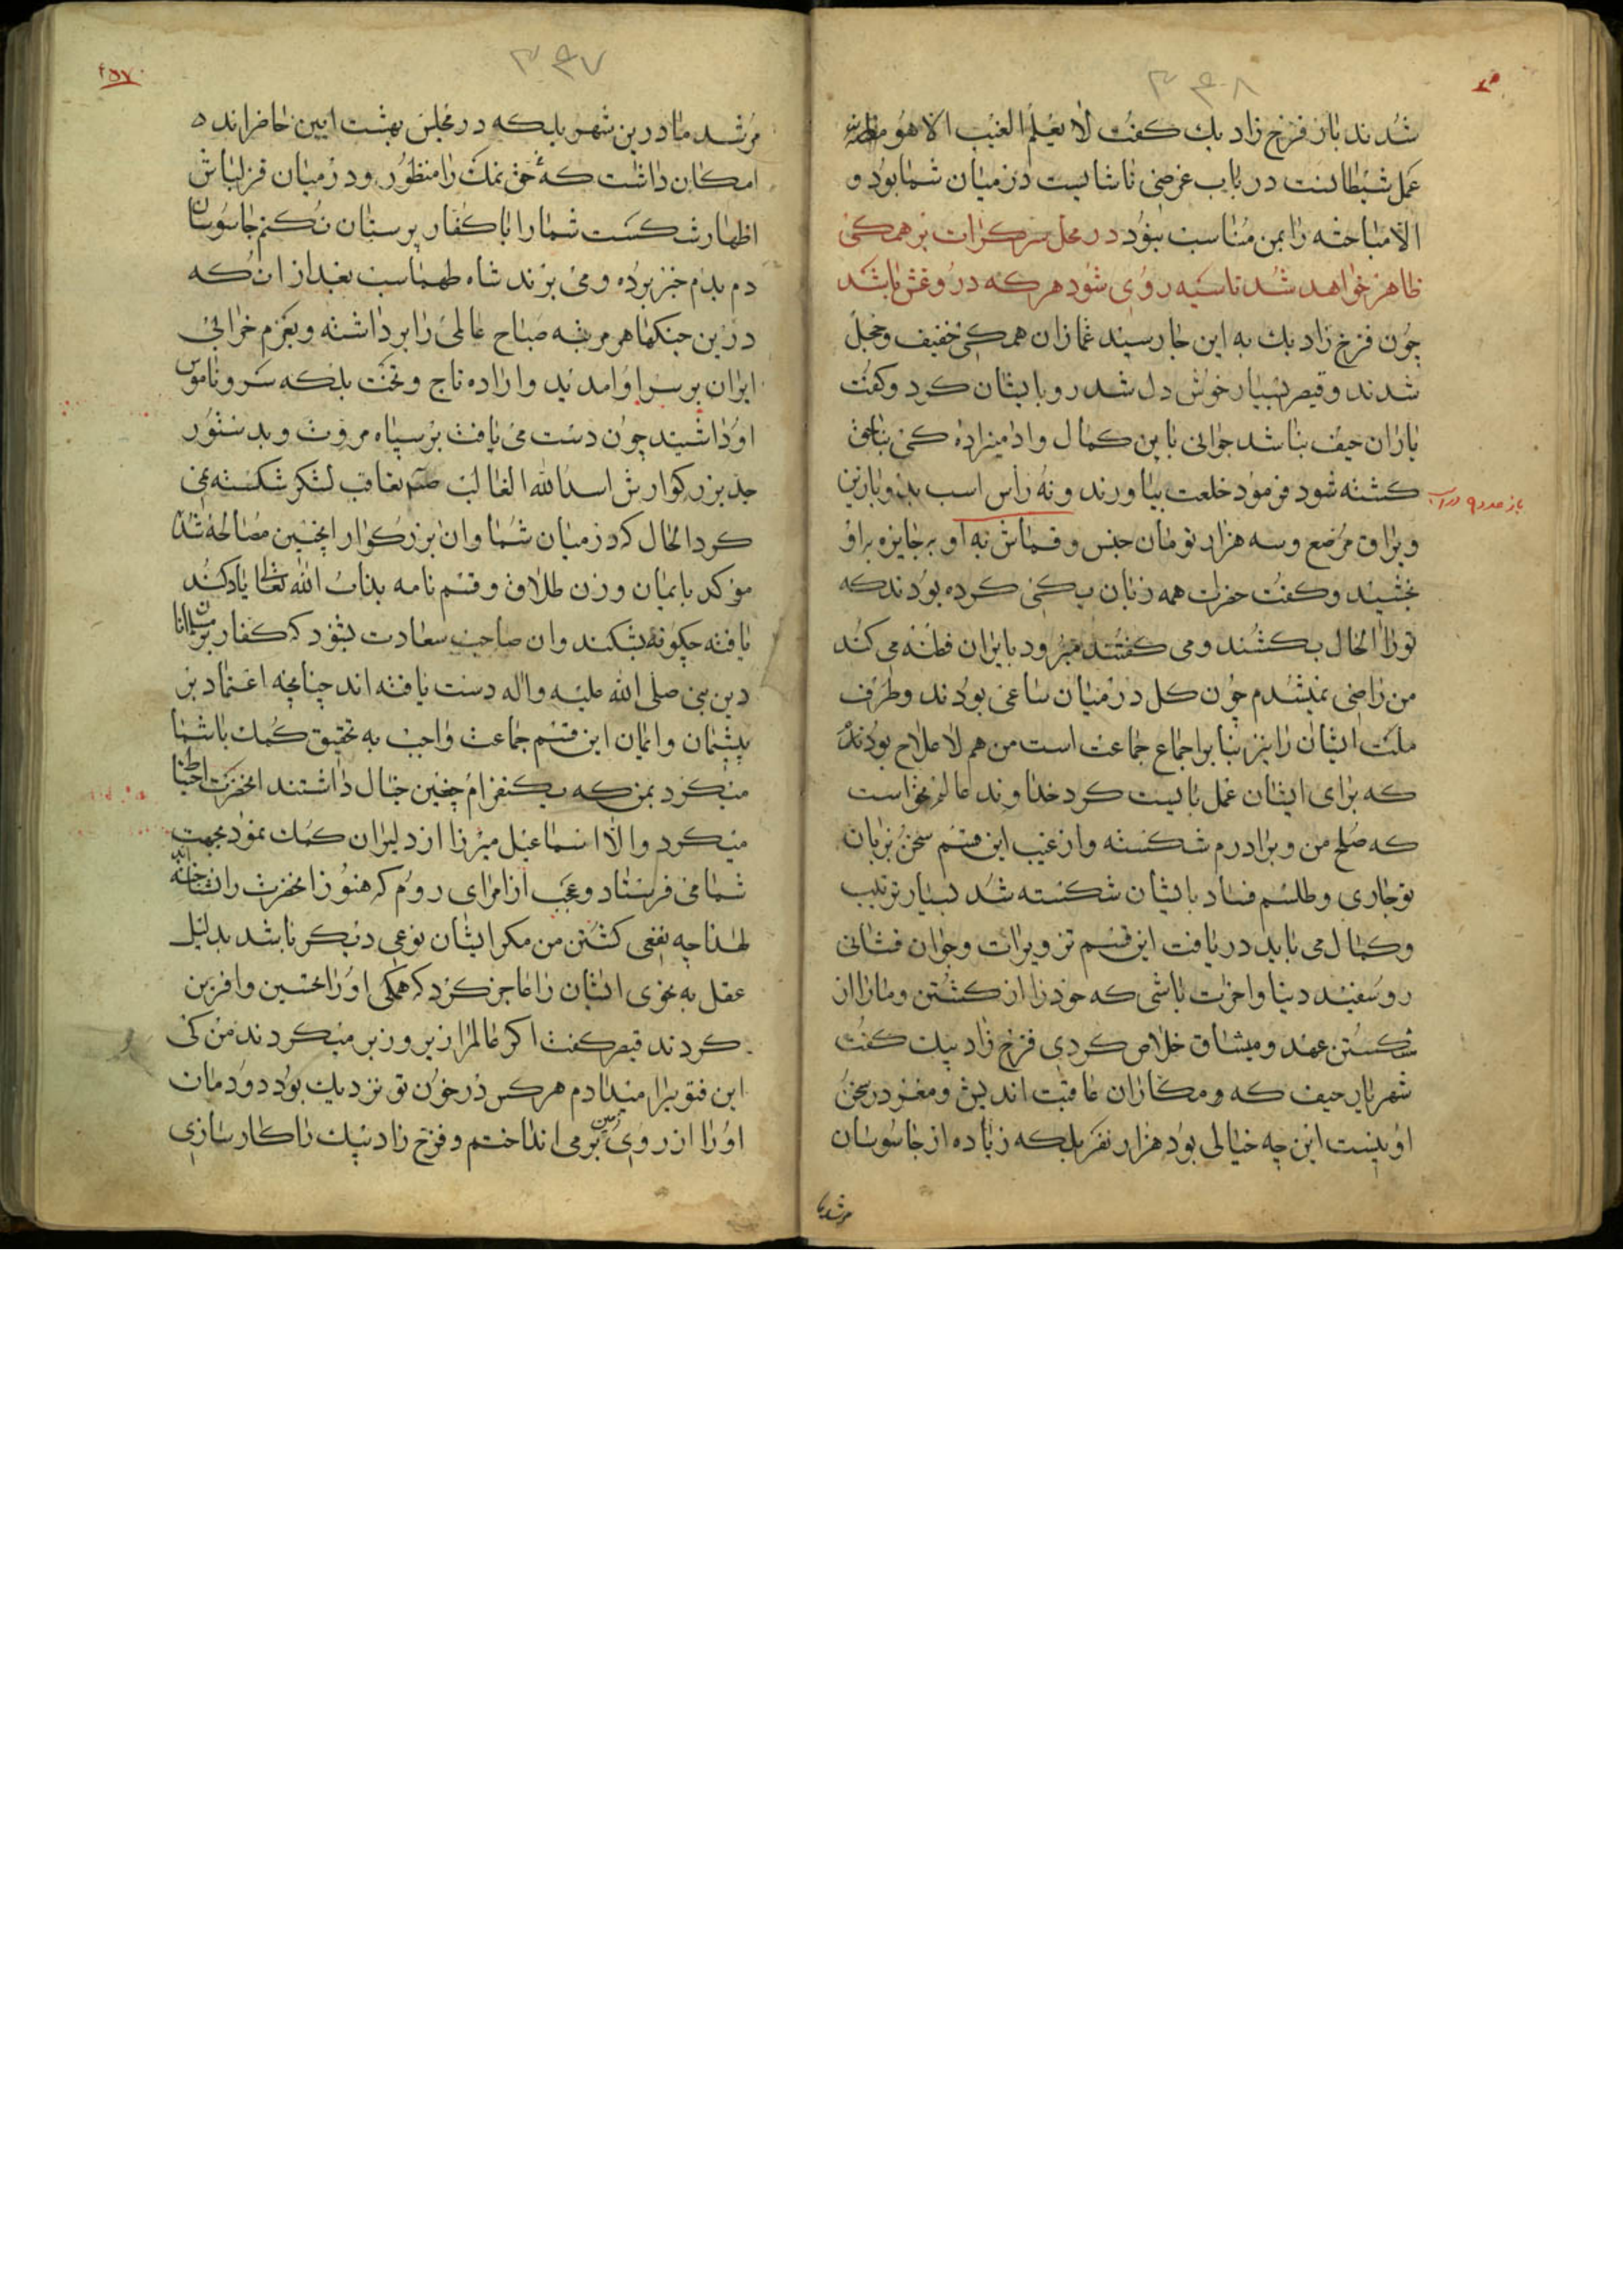 ۳۴۸
شدند باز فرخ زاد بك کفت لا یعلم الغیب الا هو
عمل شیطانست در باب غرضی ناشایست در میان شما بود و
الا مباحثه را بمن مناسبت نبود در محل سرکرات بر همکی
ظاهر خواهد شد تا سیه روی شود هرکه در وغش باشد
چون فرخ زاد بك به این جا رسیند غمازان همکی خفیف و خجل
شدند و قیصر بسیار خوش دل شد رو بایشان کرد و کفت
یاران حیف نباشد جوانی باین کمال و ادمیزاده کی بناحق
کشته شود فرمود خلعت بیاورند و نه رأس اسب بدو با زین
و یراق مرصع و سه هزار تومان جنس و قماش به او بر جایزه براو
بخشیند و کفت حضرات همه زبان یکی کرده بودند که
تو را الحال بکشند و می کفتند میرود بایران فتنه می کند
من راضی نمیشدم چون کل در میان ساعی بودند و طرف
ملت ایشان را نیز بنابر اجماع جماعت است من هم لاعلاج بودند
که برای ایشان عمل بایست کرد خداوند عالم نخواست
که صلح من و برادرم شکسته و از غیب این قسم سخن بزبان
تو جاری و طلسم فساد بایشان شکسته شد بسیار ترتیب
و کمال می باید دریافت این قسم تزویرات و جوان فشانی
رو سفید دینا و اخرت باشی که خود را از کشتن و ما را از
شکستن عهد و میشاق خلاص کردی فرخ زاد بیك کفت
شهریار حیف که و مکاران عاقبت اندیش و مغز در سخن
او نیست این چه خیالی بود هزار نفر بلکه زیاده از جاسوسان
مرشد ما
۳۴۷
مرشد ما درین شهر بلکه در مجلس بهشت ایین حاضراند
امکان داشت که حق نمك را منظور و در میان قزلباش
اظهار شکست شما را با کفار پرستان نکنم جاسوسان
دم بدم خبر برده و می برند شاه طهماسب بعد از ان که
درین جنکها هر مرتبه صباح عالمی را برداشته و بعزم خرابی
ایران بر سر او امدید و اراده تاج و تخت بلکه سر و ناموس
او داشتید چون دست می یافت بر سپاه مروت و بدستور
جد بزرکوارش اسد الله الغالب تعاقب لشکر شکسته نمی
کرد الحال که در میان شما و ان بزرکوار اینچنین مصالحه شد
موکد بایمان و زن طلاق و قسم نامه بذات الله تعالی یاد کند
یافته چکونه بشکند و ان صاحب سعادت بشنود که کفار بر مسلمانان
دین نبی صلی الله علیه و اله دست یافته اند چنانچه اعتماد بر
پیشمان و ایمان این قسم جماعت واجب به تحقیق کمك باشما
میکرد بمن که یکنفرام چنین خیال داشتند انحضرت احتیاط
میکرد و الا اسماعیل میرزا از دلیران کمك نمود بجهت
شما می فرستاد و عجب از امرای روم که هنوز انحضرت را نشناخته اند
لهذا چه نفعی کشتن من مکر ایشان نوعی دیکر باشد بدلیل
عقل به نحوی ایشان را عاجز کرد که همکی او را تحسین و افرین
کردند قیصر کفت اکر عالم را زیر و زبر میکردند من کی
این فتویرا میدادم هرکس در خون تو نزدیك بود دودمان
او را از روی زمین بر می انداختم و فرخ زاد بیك را کارسازی